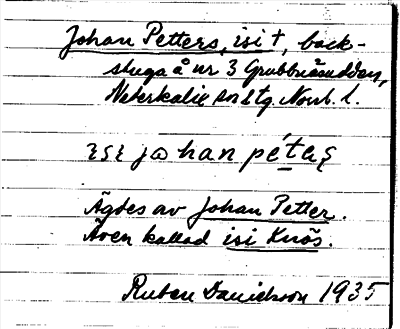 Johan Petters, isi †, back-
stuga å nr 3 Grubbnäsudden,
Nederkalix sn & tg. Norrb. l.
jo han pétaş
Ägdes av Johan Petter.
Även kallad isi Knös.
Ruben Danielsson 1935